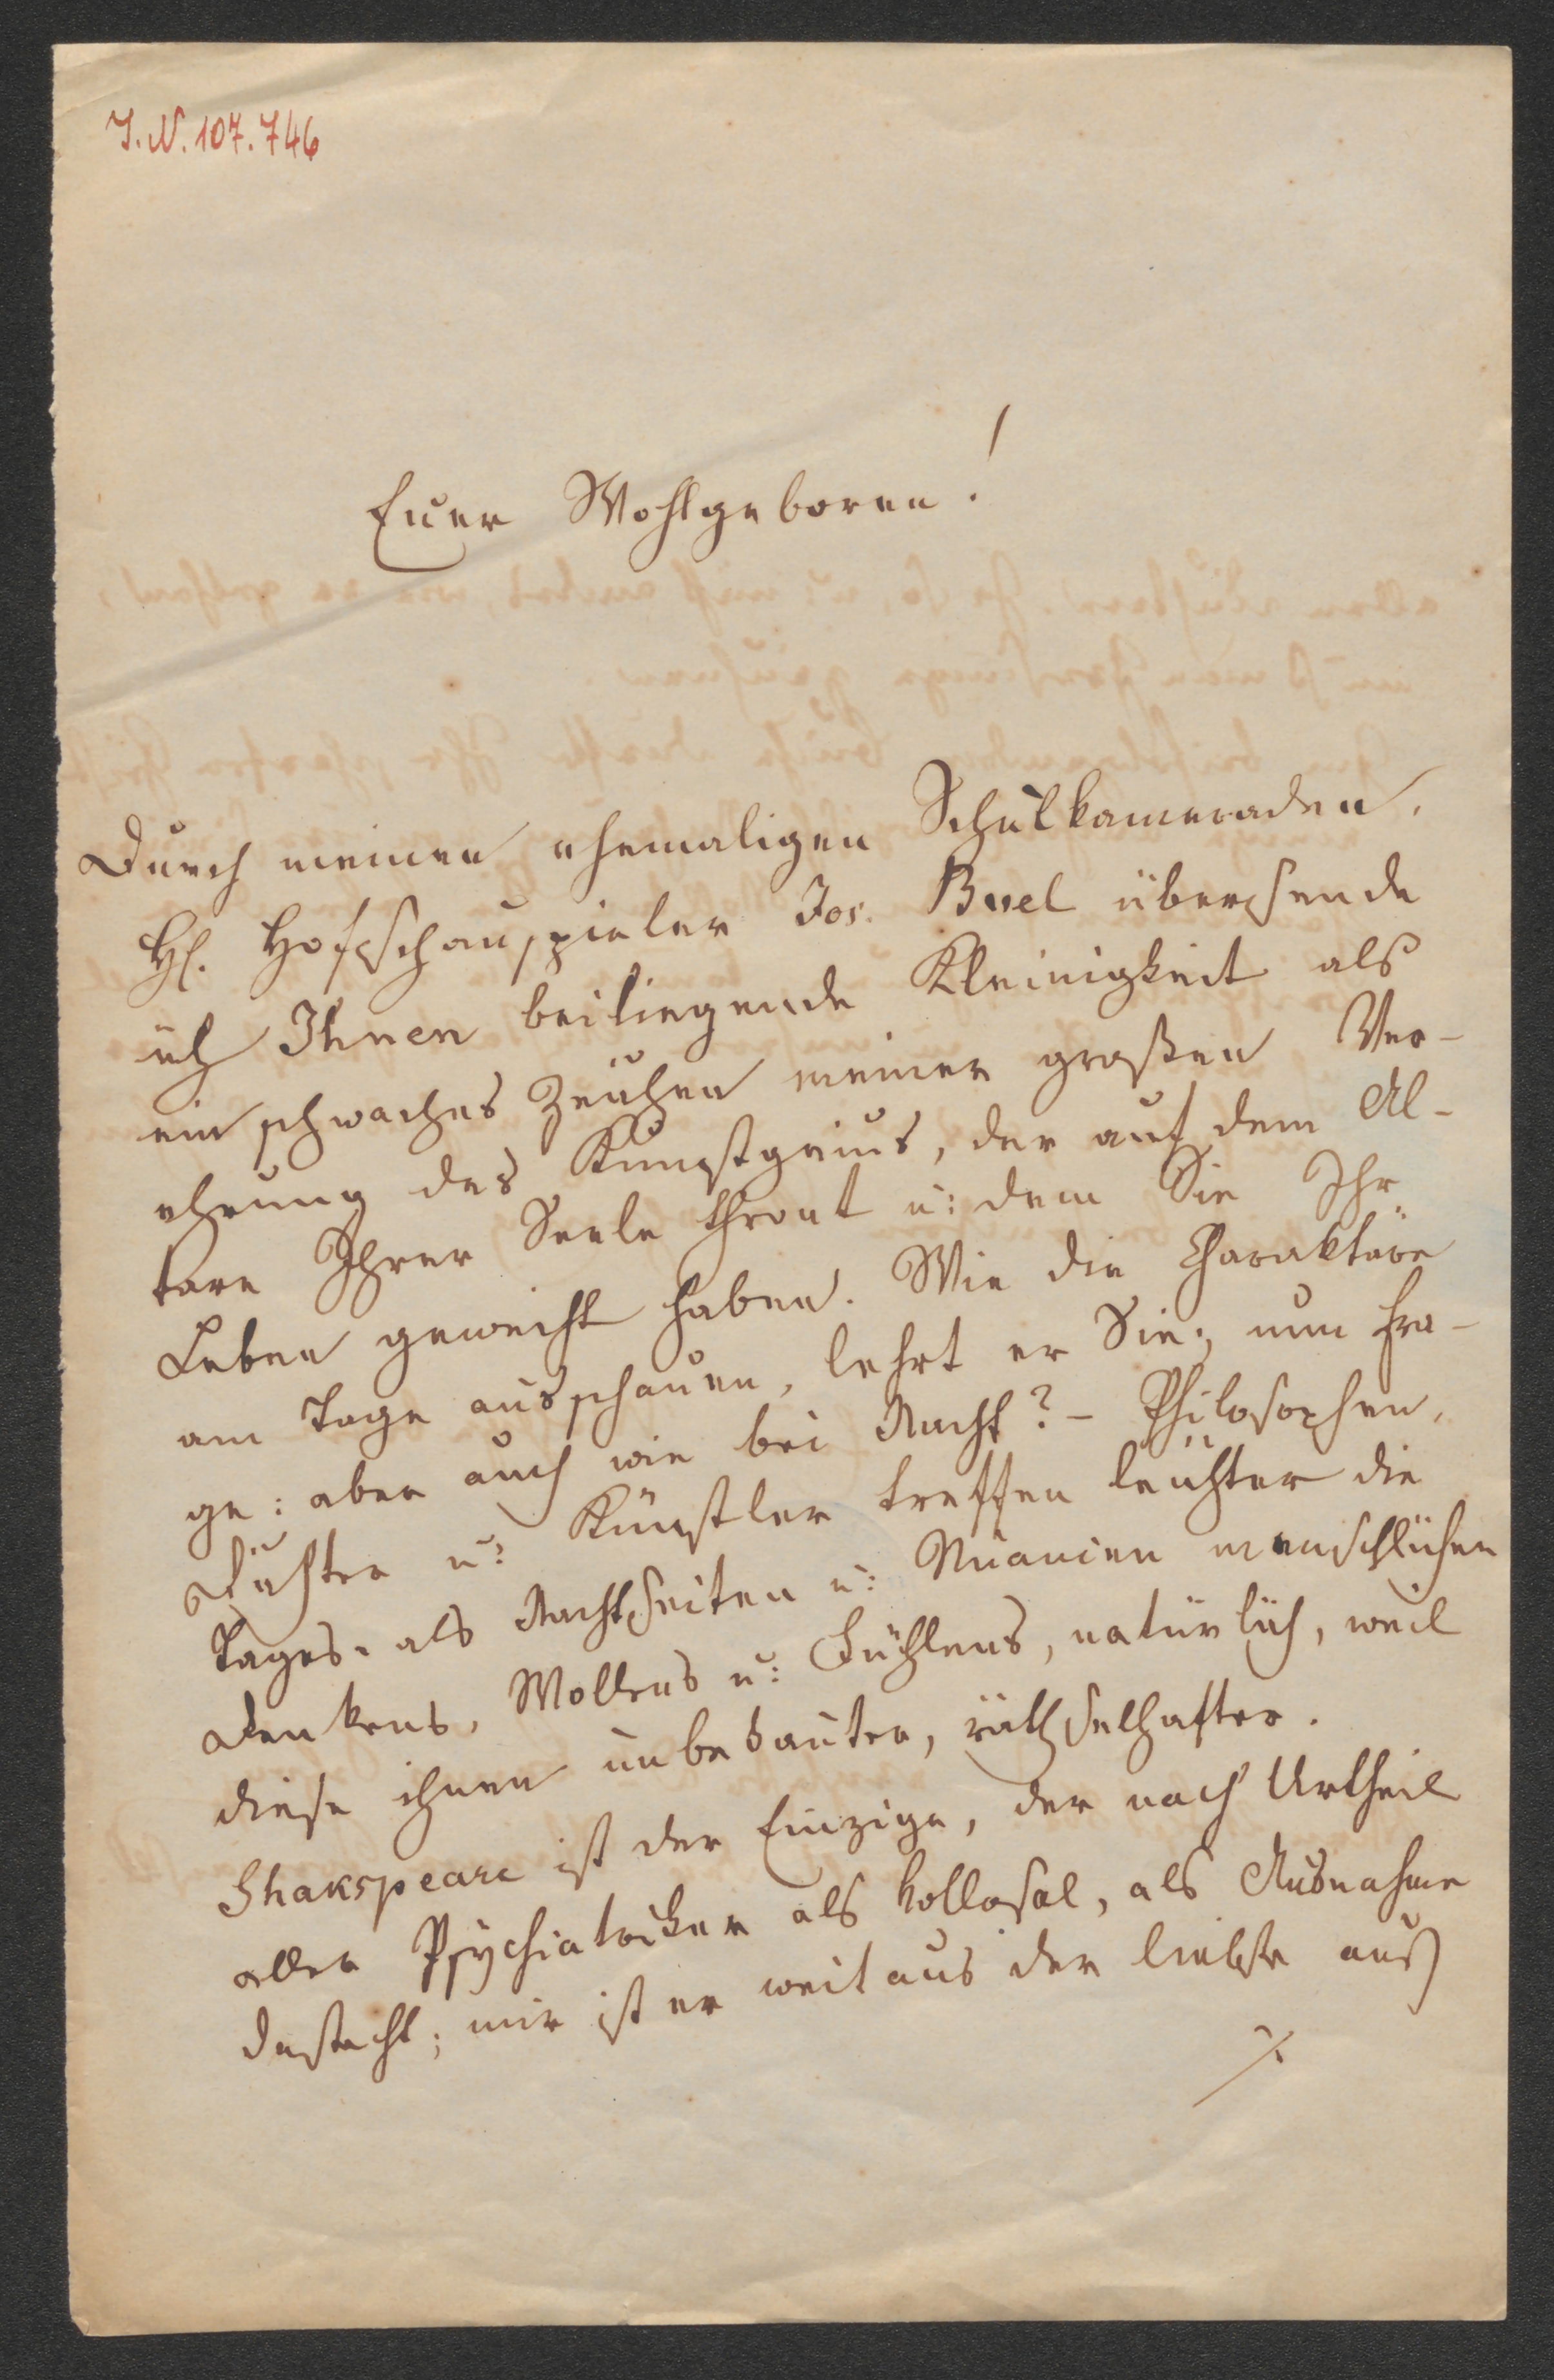 I.N. 107.746
Euer Wohlgeboren!
Durch meinen ehemaligen Schulkameraden,
H. Hofschauspieler Jos. Buel übersende
ich Ihnen beiliegende Kleinigkeit als
ein schwaches Zeichen meiner großen Ver-
ehrung des Kunstgenius, der auf dem Al-
tare Ihrer Seele thront u: dem Sie Ihr
Leben geweiht haben. Wie die Charaktäre
am Tage ausschauen, lehrt er Sie; nun Fra-
ge: aber auch wie bei Nacht? - Philosophen,
Dichter u: Künstler treffen leichter die
Tages- als Nachtseiten u: Nuancen menschlichen
Denkens, Wollens u: Fühlens, natürlich, weil
diese ihnen unbekannter, räthselhafter.
Shakspeare ist der Einzige, der nach Urtheil
aller Psychiatriker als kollosal, als Ausnahme
dasteht; mir ist er weitaus der liebste aus
./.